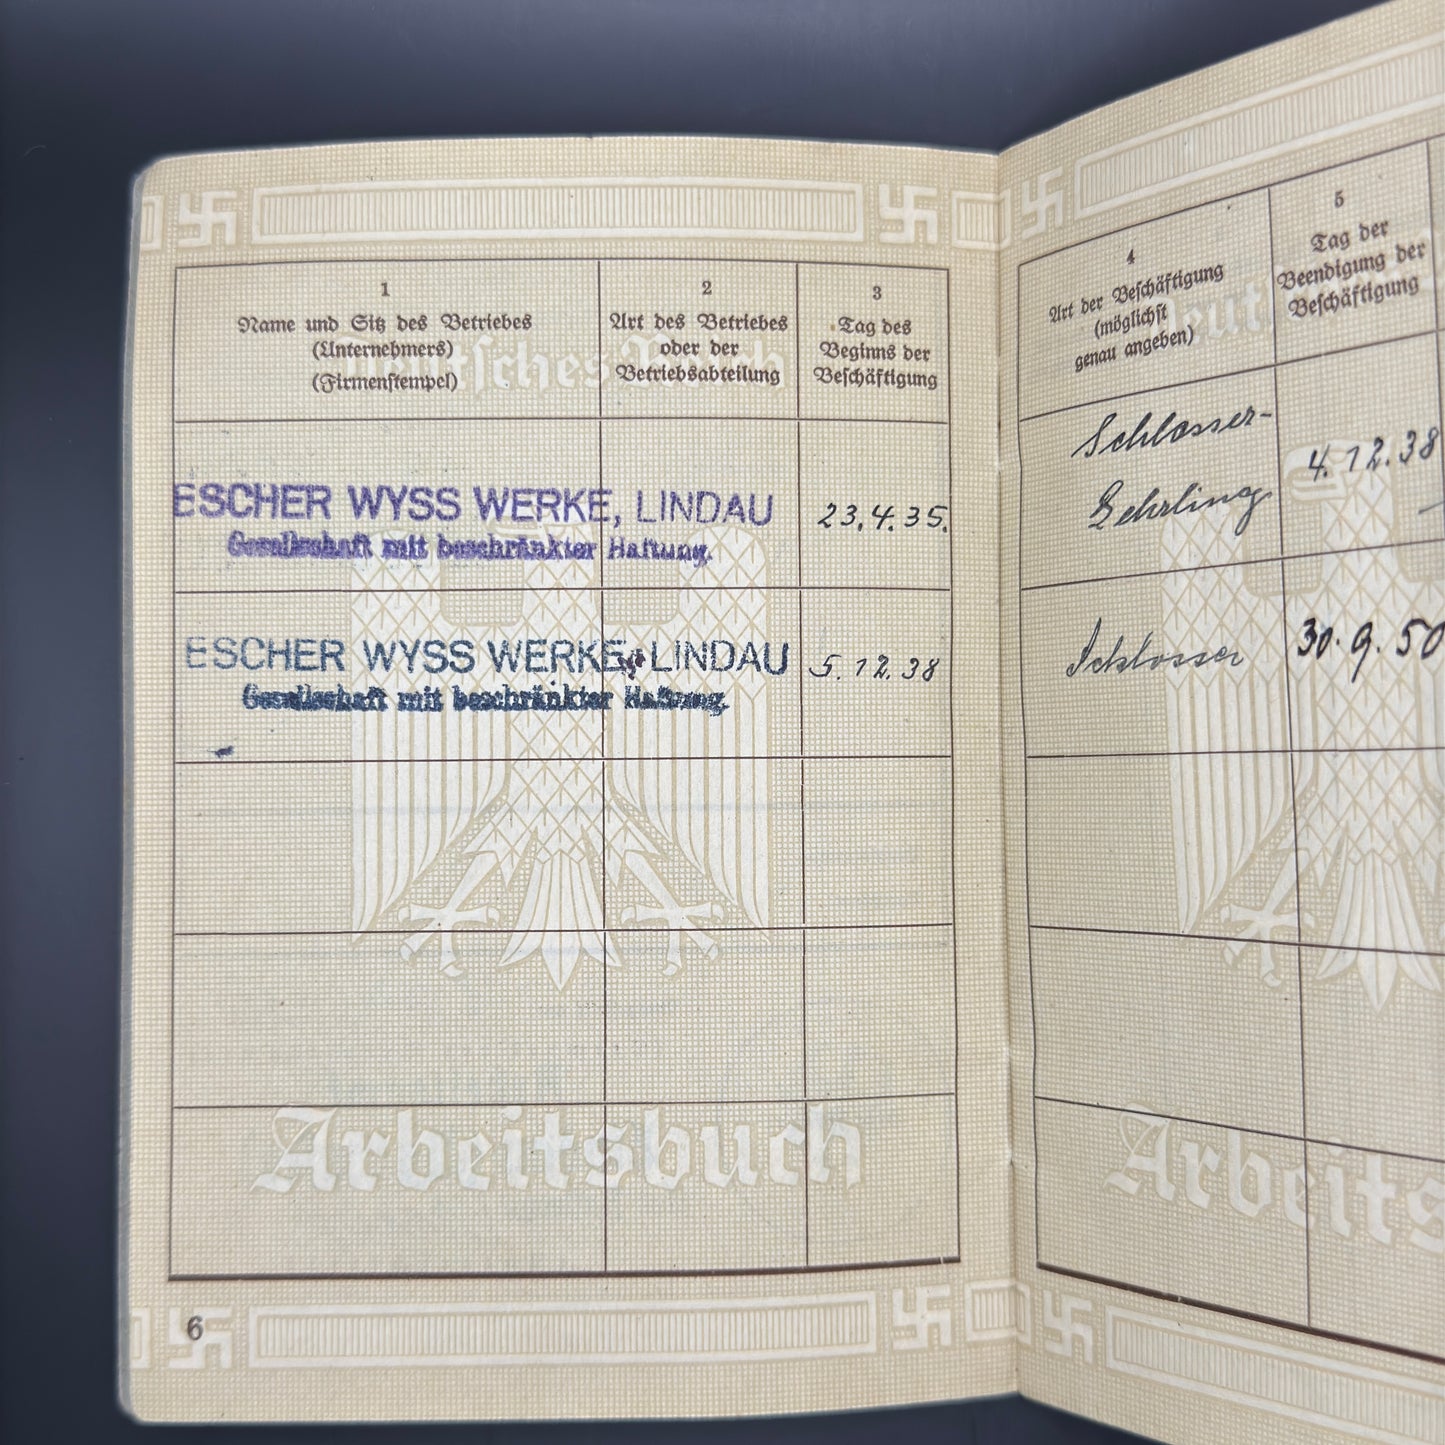 1
Name und Sitz des Betriebes
(Unternehmers)
(Firmenstempel)
2
Art des Betriebes
oder der
Betriebsabteilung
3
Tag des
Beginns der
Beschäftigung
ESCHER WYSS WERKE, LINDAU
Gesellschaft mit beschränkter Haftung.
23.4.35.
ESCHER WYSS WERKE, LINDAU
Gesellschaft mit beschränkter Haftung.
5.12.38
Deutsches Reich
Arbeitsbuch
6
4
Art der Beschäftigung
(möglichst
genau angeben)
5
Tag der
Beendigung der
Beschäftigung
Schlosser-
Lehrling
4.12.38
Schlosser
30.9.50
Deut
Arbeits